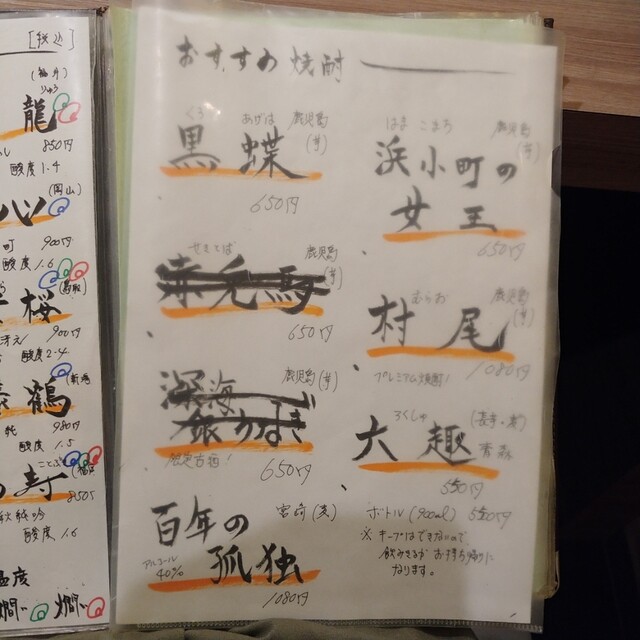 [税込]
龍
850円
酸度1.4
(岡山)
900円
酸度1.6
(鳥取)
桜
900円
酸度2.4
(新潟
鶴
980円
酸度
1.5
寿
850円
酸度1.6
おすすめ焼酎
くろ あげは
鹿児島
(芋)
黒蝶
650円
鹿児島
(芋)
赤兎馬
650円
深海
鹿児島(芋)
銀うなぎ
限定古酒!
650円
百年の
宮崎(麦)
孤独
アルコール
40%
1080円
はま こまち
鹿児島
(芋)
浜小町の
女王
650円
むらお
鹿児島
(芋)
村尾
1080円
プレミアム焼酎!
ろくしゅ
大趣
青森
550円
ボトル(900ml)
※キープはできないので
飲みきるか お持ち帰りに
なります。